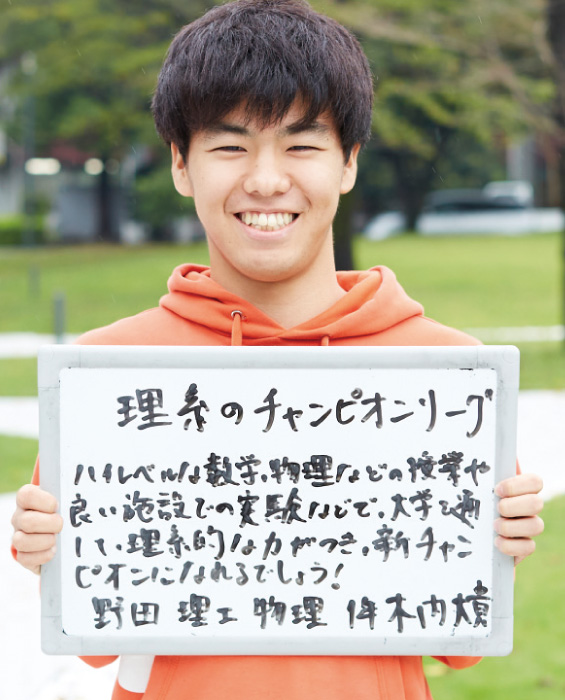 理系のチャンピオンリーグ
ハイレベルな数学、物理などの授業や
良い施設での実験などで、大学を通
して、理系的な力がつき、新チャン
ピオンになれるでしょう！
野田 理工 物理 1年 木内